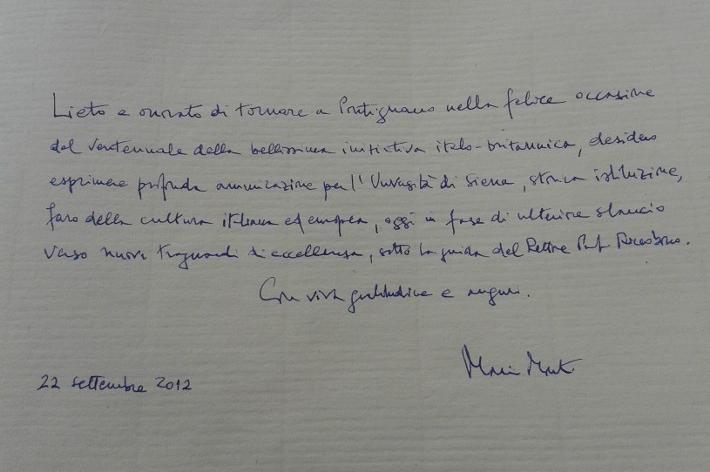 Lieto e onorato di tornare a Pontignano nella felice occasione
del ventennale della bellissima iniziativa italo-britannica, desidero
esprimere profonda ammirazione per l'Università di Siena, storica istituzione,
faro della cultura italiana ed europea, oggi in fase di ulteriore slancio
verso nuovi traguardi di eccellenza, sotto la guida del Rettore Prof. Riccaboni.
Con viva gratitudine e auguri.
Mario Monti
22 settembre 2012